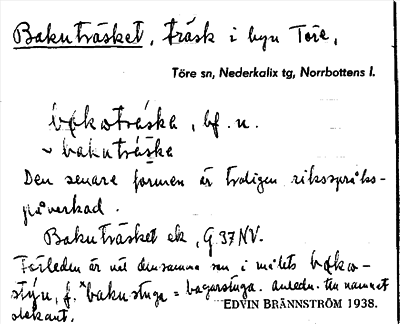 Bakuträsket, träsk i byn Töre,
Töre sn, Nederkalix tg, Norrbottens l.
bɷkɷtráska, bf. n.
~ bakuträska
Den senare formen är troligen riksspråks-
påverkad.
Bakuträsket ek, G. 37 NV.
Förleden är väl densamma som i målets bɷkɷ-
stýu, f. *bakustuga = bagarstuga. Anledn. till namnet
obekant.
EDVIN BRÄNNSTRÖM 1938.